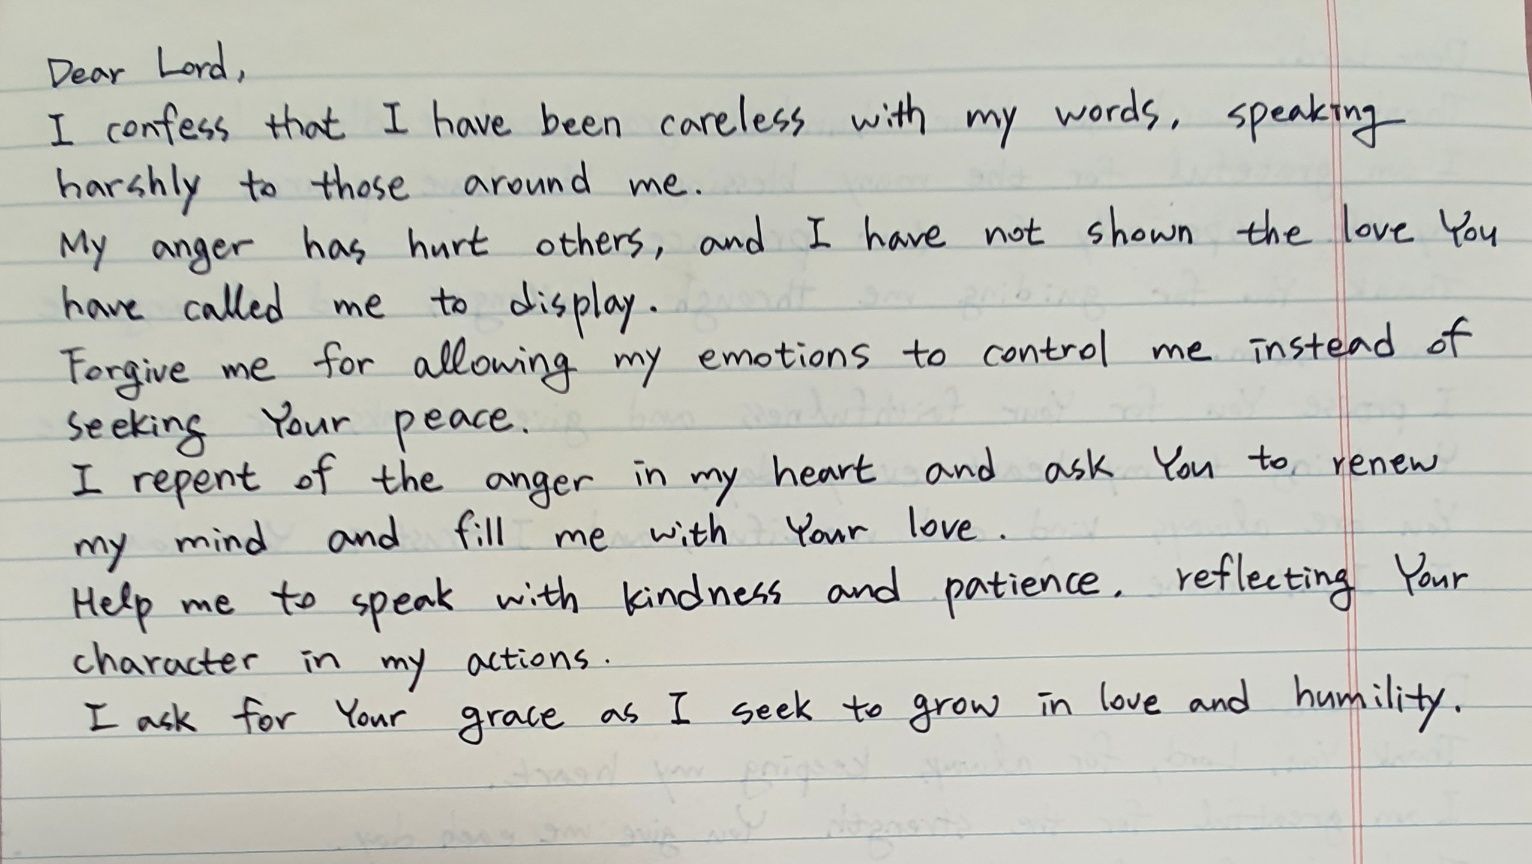 Dear Lord,
I confess that I have been careless with my words, speaking
harshly to those around me.
My anger has hurt others, and I have not shown the love You
have called me to display.
Forgive me for allowing my emotions to control me instead of
seeking Your peace.
I repent of the anger in my heart and ask You to renew
my mind and fill me with Your love.
Help me to speak with kindness and patience, reflecting Your
character in my actions.
I ask for Your grace as I seek to grow in love and humility.